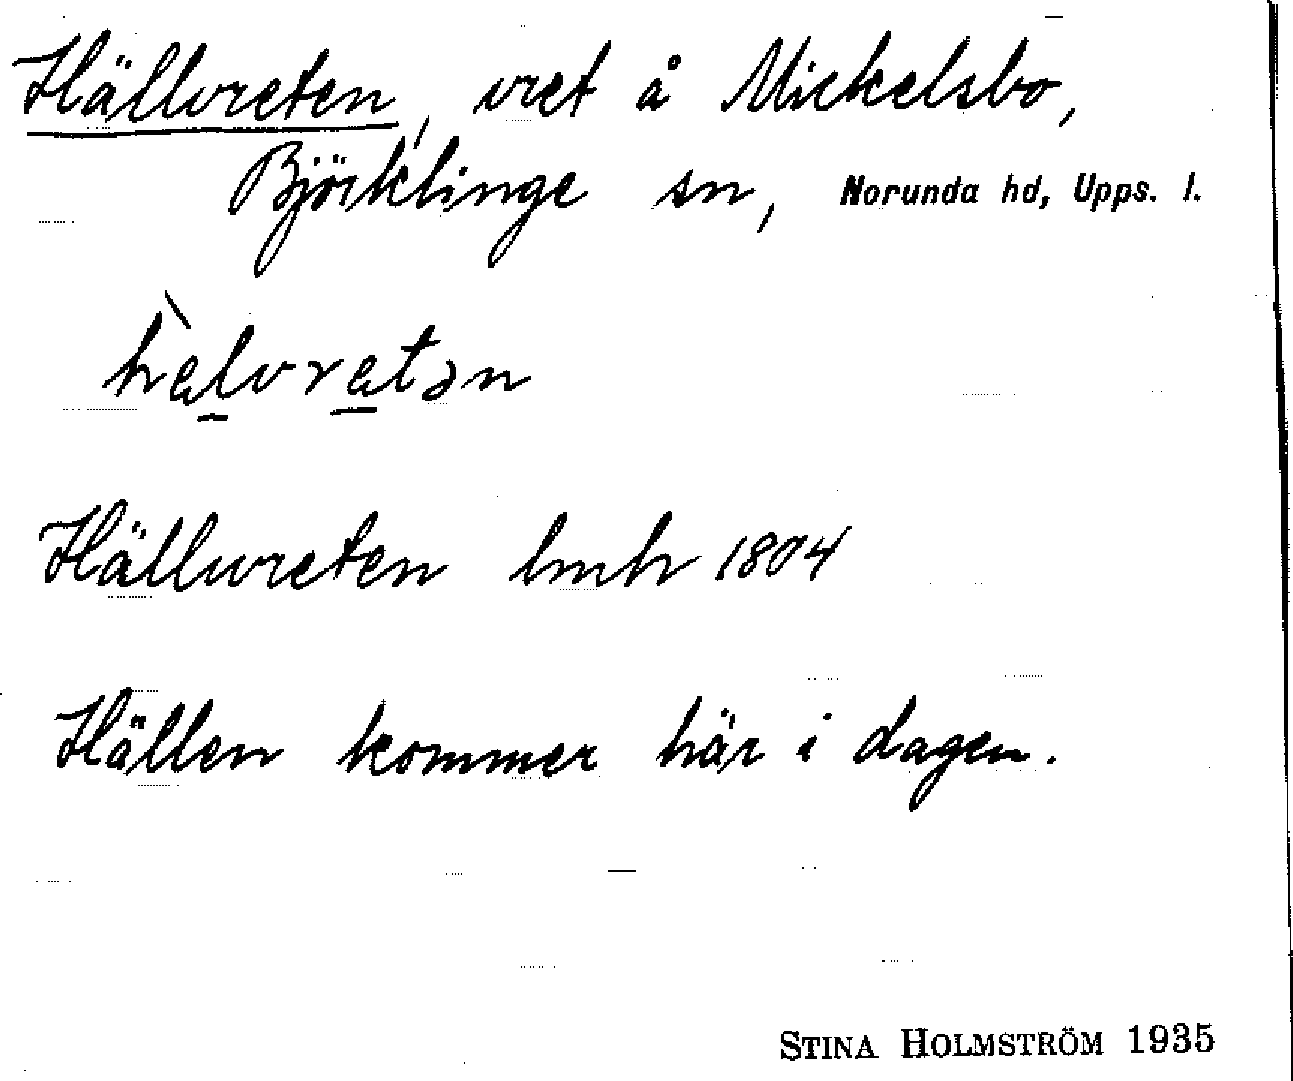 Hällvreten, vret å Mickelsbo,
Björklinge sn, Norunda hd, Upps. l.
hælvrætən
Hällwreten lmh 1804
Hällen kommer här i dagen.
STINA HOLMSTRÖM 1935